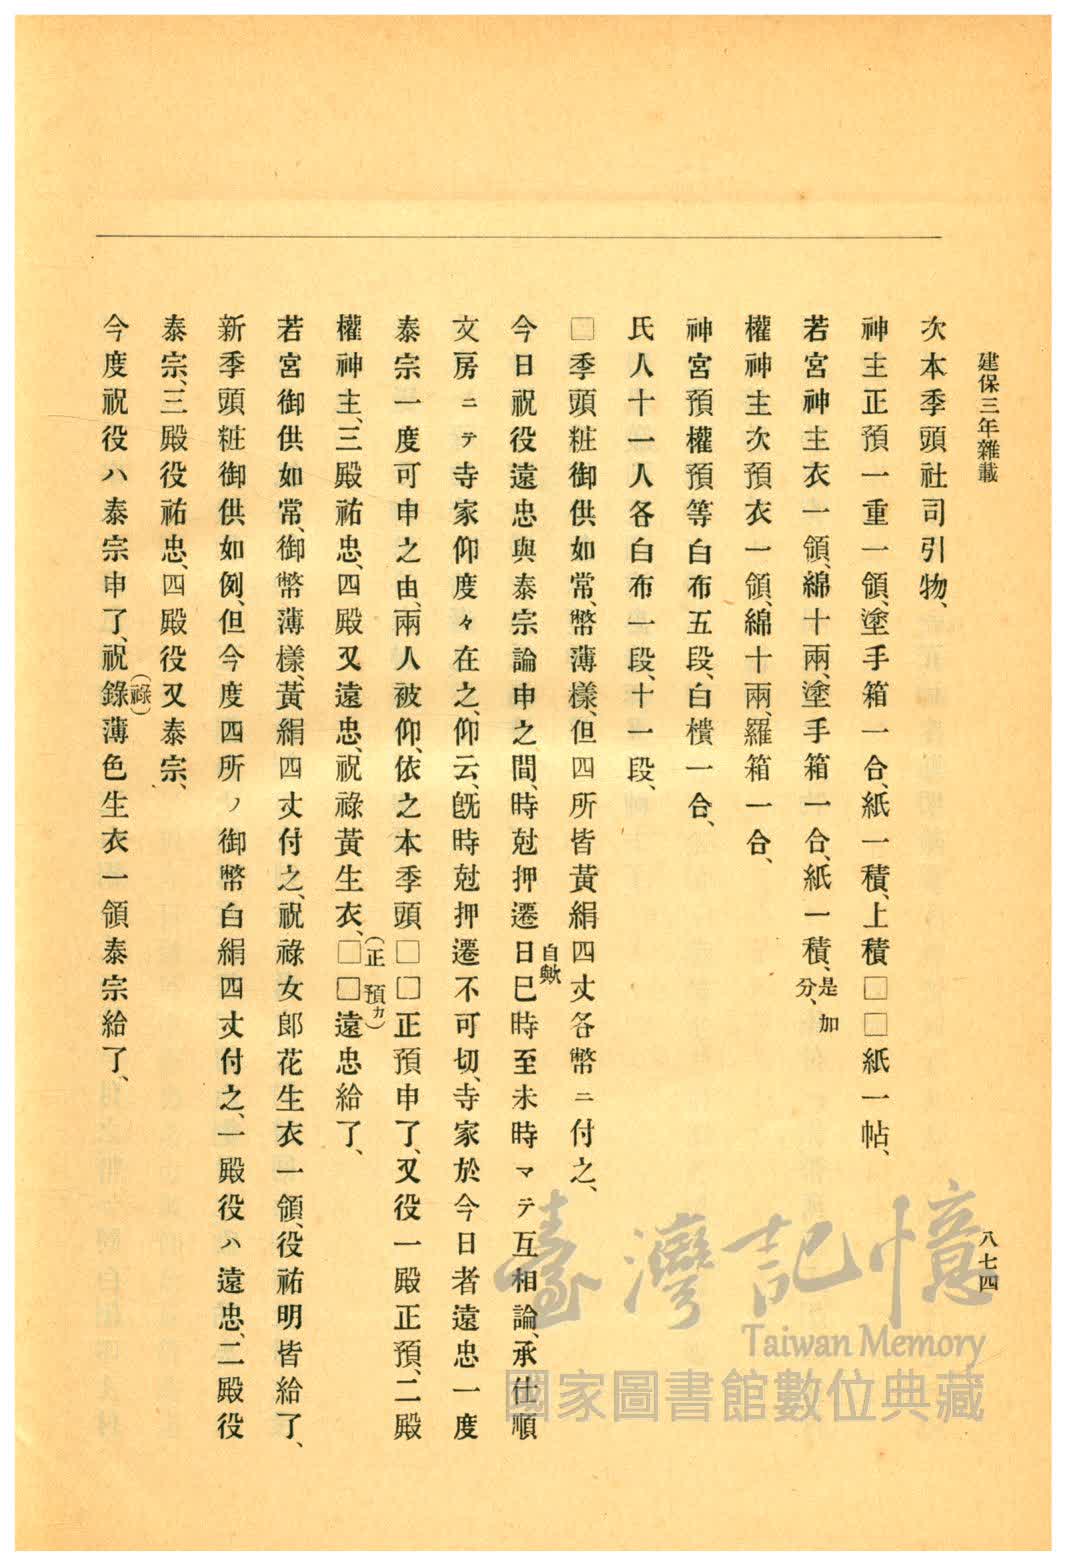 建保三年雜載
八七四
次本季頭社司引物、
神主正預一重一領、塗手箱一合、紙一積、上積□□紙一帖、
若宮神主衣一領、綿十兩、塗手箱一合、紙一積、是加分、
權神主次預衣一領、綿十兩、羅箱一合、
神宮預權預等白布五段、白樻一合、
氏人十一人各白布一段、十一段、
□季頭粧御供如常、幣薄樣、但四所皆黃絹四丈各幣ニ付之、
今日祝役遠忠與泰宗論申之間、時尅押遷日巳時至未時マテ互相論、承仕順
自歟
文房ニテ寺家仰度々在之、仰云、旣時尅押遷不可切、寺家於今日者遠忠一度
泰宗一度可申之由、兩人被仰、依之本季頭□□正預申了、又役一殿正預、二殿
權神主、三殿祐忠、四殿又遠忠、祝祿黃生衣、□□遠忠給了、
(正預カ)
若宮御供如常、御幣薄樣、黃絹四丈付之、祝祿女郎花生衣一領、役祐明皆給了、
新季頭粧御供如例、但今度四所ノ御幣白絹四丈付之、一殿役ハ遠忠、二殿役
泰宗、三殿役祐忠、四殿役又泰宗、
今度祝役ハ泰宗申了、祝錄薄色生衣一領泰宗給了、
(祿)
臺灣記憶
Taiwan Memory
國家圖書館數位典藏